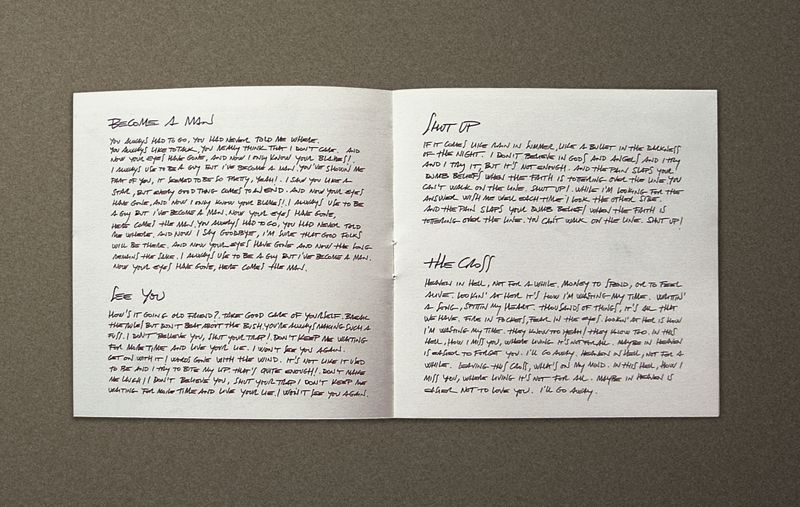 BECOME A MAN
YOU ALWAYS HAD TO GO, YOU HAD NEVER TOLD ME WHERE.
YOU ALWAYS LIKE TO TALK, YOU REALLY THINK THAT I DON'T CARE. AND
NOW YOUR EYES HAVE GONE, AND NOW I ONLY KNOW YOUR BLAMES!.
I ALWAYS USE TO BE A GUY BUT I'VE BECOME A MAN, YOU'VE SHOWN ME
PART OF YOU, IT SEEMED TO BE SO PRETTY, YEAH!. I SAW YOU LIKE A
STAR, BUT EVERY GOOD THING COMES TO AN END. AND NOW YOUR EYES
HAVE GONE, AND NOW I ONLY KNOW YOUR BLAMES!. I ALWAYS USE TO BE
A GUY BUT I'VE BECOME A MAN. NOW YOUR EYES HAVE GONE,
HERE COMES THE MAN. YOU ALWAYS HAD TO GO, YOU HAD NEVER TOLD
ME WHERE. AND NOW I SAY GOODBYE, I'M SURE THAT GOOD FOLKS
WILL BE THERE. AND NOW YOUR EYES HAVE GONE AND NOW THE SONG
REMAINS THE SAME. I ALWAYS USE TO BE A GUY BUT I'VE BECOME A MAN.
NOW YOUR EYES HAVE GONE, HERE COMES THE MAN.
SEE YOU
HOW'S IT GOING OLD FRIEND?. TAKE GOOD CARE OF YOURSELF. BREAK
THE RULES BUT DON'T BEAT ABOUT THE BUSH, YOU'RE ALWAYS MAKING SUCH A
FUSS. I DON'T BELIEVE YOU, SHUT YOUR TRAP! DON'T KEEP ME WAITING
FOR MORE TIME AND LIVE YOUR LIE. I WON'T SEE YOU AGAIN.
GET ON WITH IT! WORDS GONE WITH THE WIND. IT'S NOT LIKE IT USED
TO BE AND I TRY TO BITE MY LIP. THAT'S QUITE ENOUGH!. DON'T MAKE
ME LAUGH! I DON'T BELIEVE YOU, SHUT YOUR TRAP! DON'T KEEP ME
WAITING FOR MORE TIME AND LIVE YOUR LIE. I WON'T SEE YOU AGAIN.
SHUT UP
IF IT COMES LIKE RAIN IN SUMMER, LIKE A BULLET IN THE DARKNESS
OF THE NIGHT. I DON'T BELIEVE IN GODS AND ANGELS AND I TRY
AND I TRY IT, BUT IT'S NOT ENOUGH. AND THE PAIN SLAPS YOUR
DUMB BELIEFS WHEN THE FAITH IS TOTERING OVER THE LINE. YOU
CAN'T WALK ON THE LINE. SHUT UP!. WHILE I'M LOOKING FOR THE
ANSWER WITH ME WELL EACH TIME I LOOK THE OTHER SIDE.
AND THE PAIN SLAPS YOUR DUMB BELIEFS WHEN THE FAITH IS
TOTERING OVER THE LINE. YOU CAN'T WALK ON THE LINE. SHUT UP!
THE CROSS
HEAVEN IN HELL, NOT FOR A WHILE. MONEY TO SPEND, OR TO FEEL
ALIVE. LOOKIN' AT HER IT'S HOW I'M WASTING MY TIME. WRITIN'
A SONG, SPITTIN MY HEART. THOUSANDS OF THINGS, IT'S ALL THAT
WE HAVE. FIRE IN POCKETS, FEAR IN THE EYES. LOOKIN' AT HER IS HOW
I'M WASTING MY TIME. THEY KNOW TOO YEAH! THEY KNOW TOO. IN THIS
HELL, HOW I MISS YOU, WHERE LIVING IT'S NOT FOR ALL. MAYBE IN HEAVEN
IS EASIER TO FORGET YOU. I'LL GO AWAY. HEAVEN IN HELL, NOT FOR A
WHILE. LEAVING THIS CROSS, WHAT'S ON MY MIND. IN THIS HELL, HOW I
MISS YOU, WHERE LIVING IT'S NOT FOR ALL. MAYBE IN HEAVEN IS
EASIER NOT TO LOVE YOU. I'LL GO AWAY.